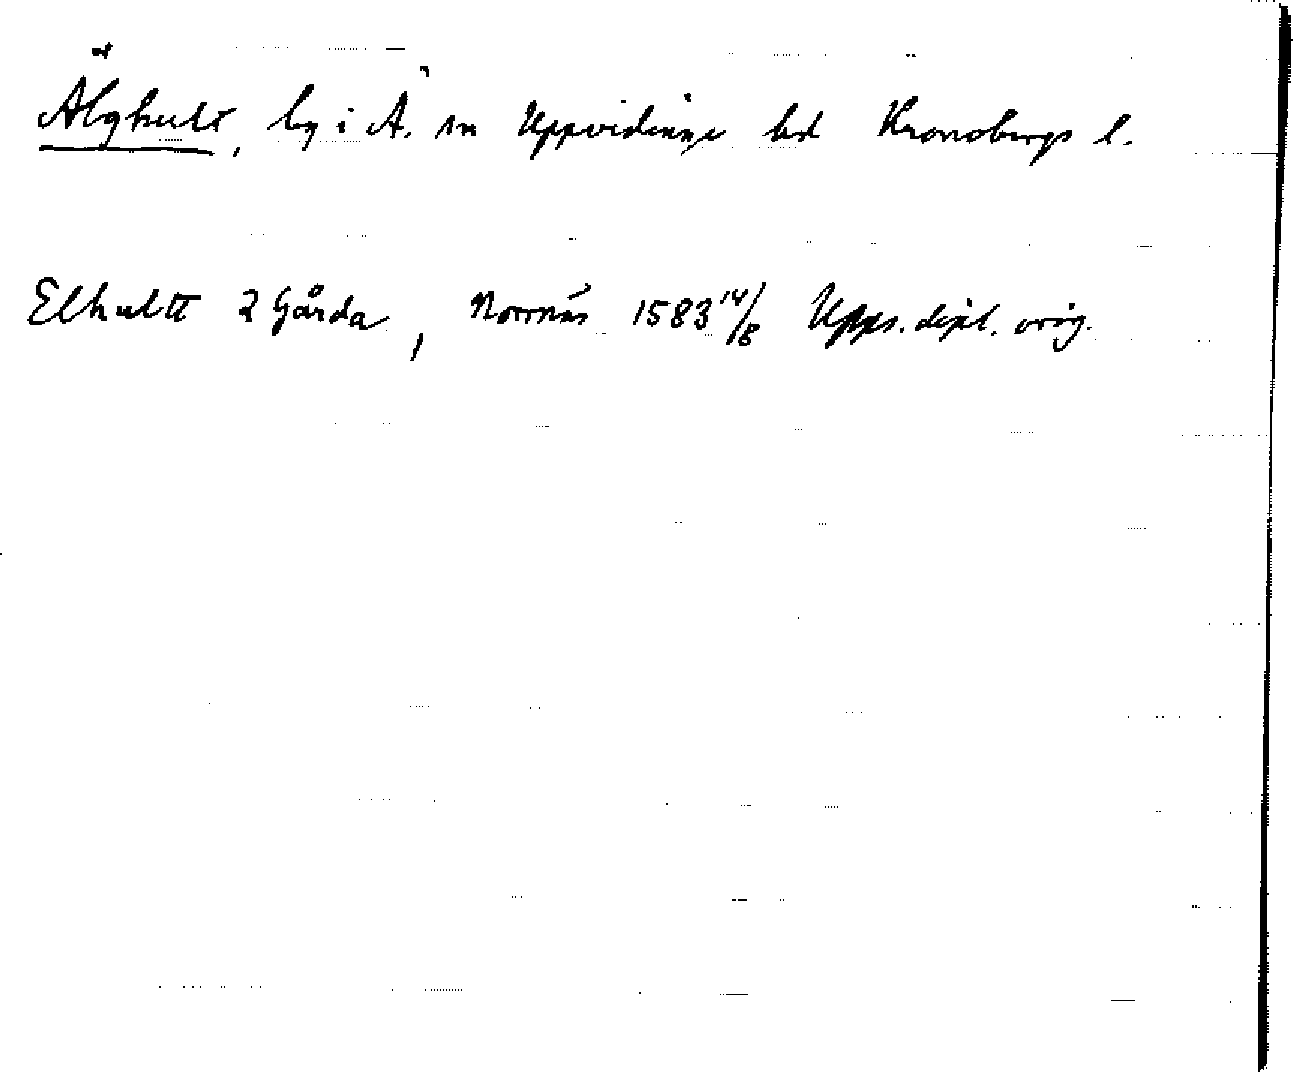 Älghult, by i Ä. sn Uppvidinge hd Kronobergs l.
Elhultt 2 Gårda, Norrnäs 1583 14/8 Upps. dipl. orig.